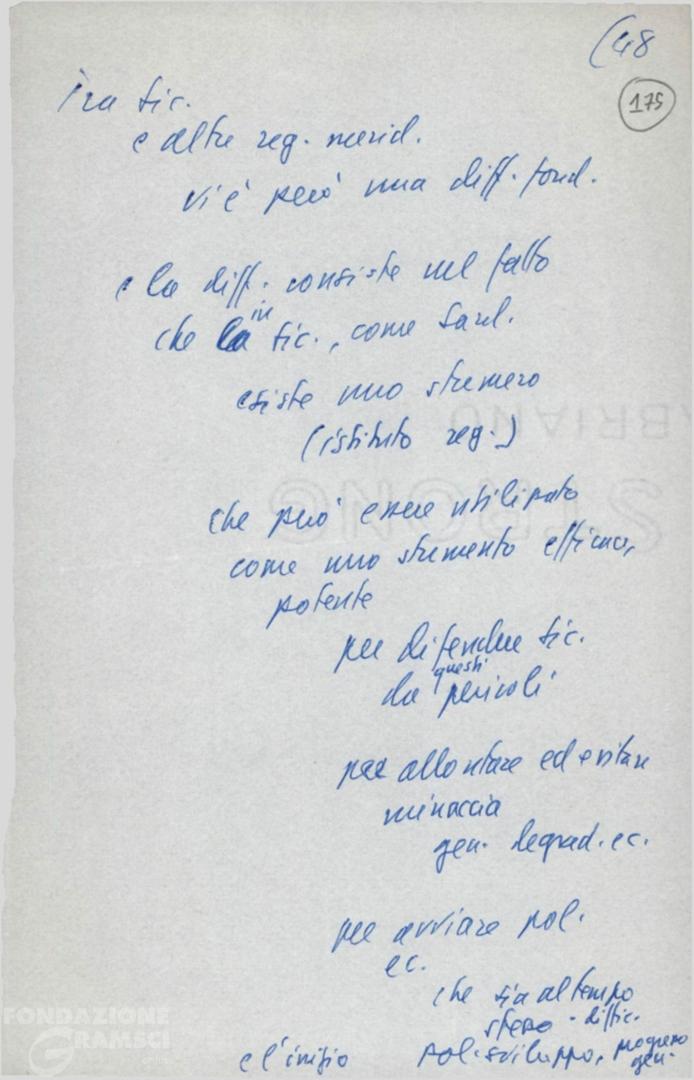 (48
175
Tra Sic.
e altre reg. merid.
vi è però una diff. fond.
e la diff. consiste nel fatto
che in Sic., come Sard.
esiste uno strumero
(istituto reg.)
che può essere utilizzato
come uno strumento efficace,
potente
per difendere Sic.
da questi pericoli
per allontare ed evitare
minaccia
gen. degrad. ec.
per avviare pol.
ec.
che sia al tempo
stesso - diffic.
e l'inizio pol. sviluppo, progresso
gen.
FABRIANO
STRONG
FONDAZIONE
GRAMSCI